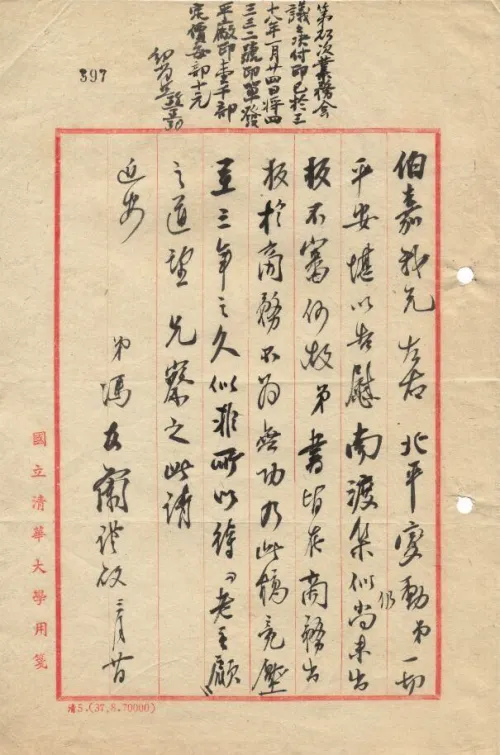 第次業務會
議決付印已於三
十八年一月廿四日將四
三三二號印單發
平廠印壹千部
定價每部十元
397
伯嘉我兄左右 北平變動弟一切
仍
平安堪以告慰南渡集似尚未出
版不審何故弟書皆在商務出
版於商務不為無功乃此稿竟壓
至三年之久似非所以待“老主顧”
之道望 兄察之此請
近安
弟馮友蘭謹啟 三月廿
國立清華大學用箋
清5.(37.8.70000)